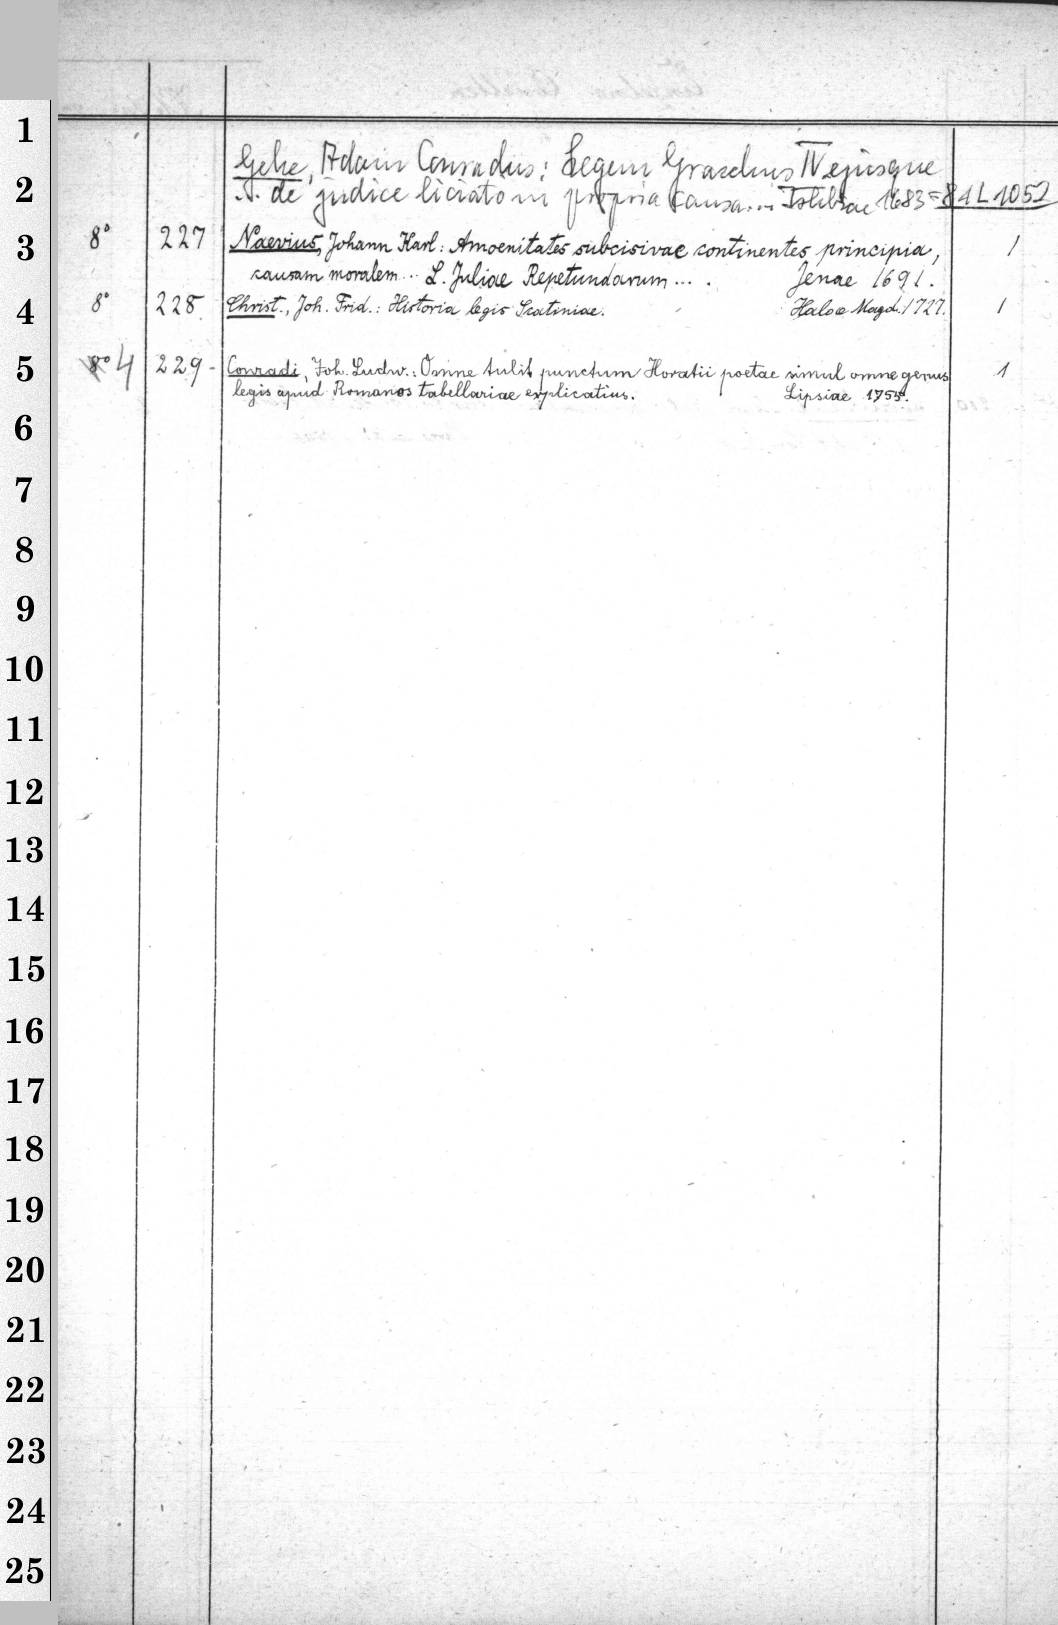 1
Gehe, Adam Conradus: Legem Gracchus IV ejusque
2
de judice licitatorum propria causa... Islebiae 1683 = 81 L 1052
3
8° 227 Naevius, Johann Karl: Amoenitates subcisivae continentes principia, 1
causam moralem... L. Juliae Repetundarum.... Jenae 1691.
4
8° 228. Christ., Joh. Frid.: Historia legis Scatiniae. Halae Magd. 1727. 1
5
8° 4 229- Conradi, Joh. Ludw.: Omne tulit punctum Horatii poetae simul omne genus 1
legis apud Romanos tabellariae explicatius. Lipsiae 1755.
6
7
8
9
10
11
12
13
14
15
16
17
18
19
20
21
22
23
24
25